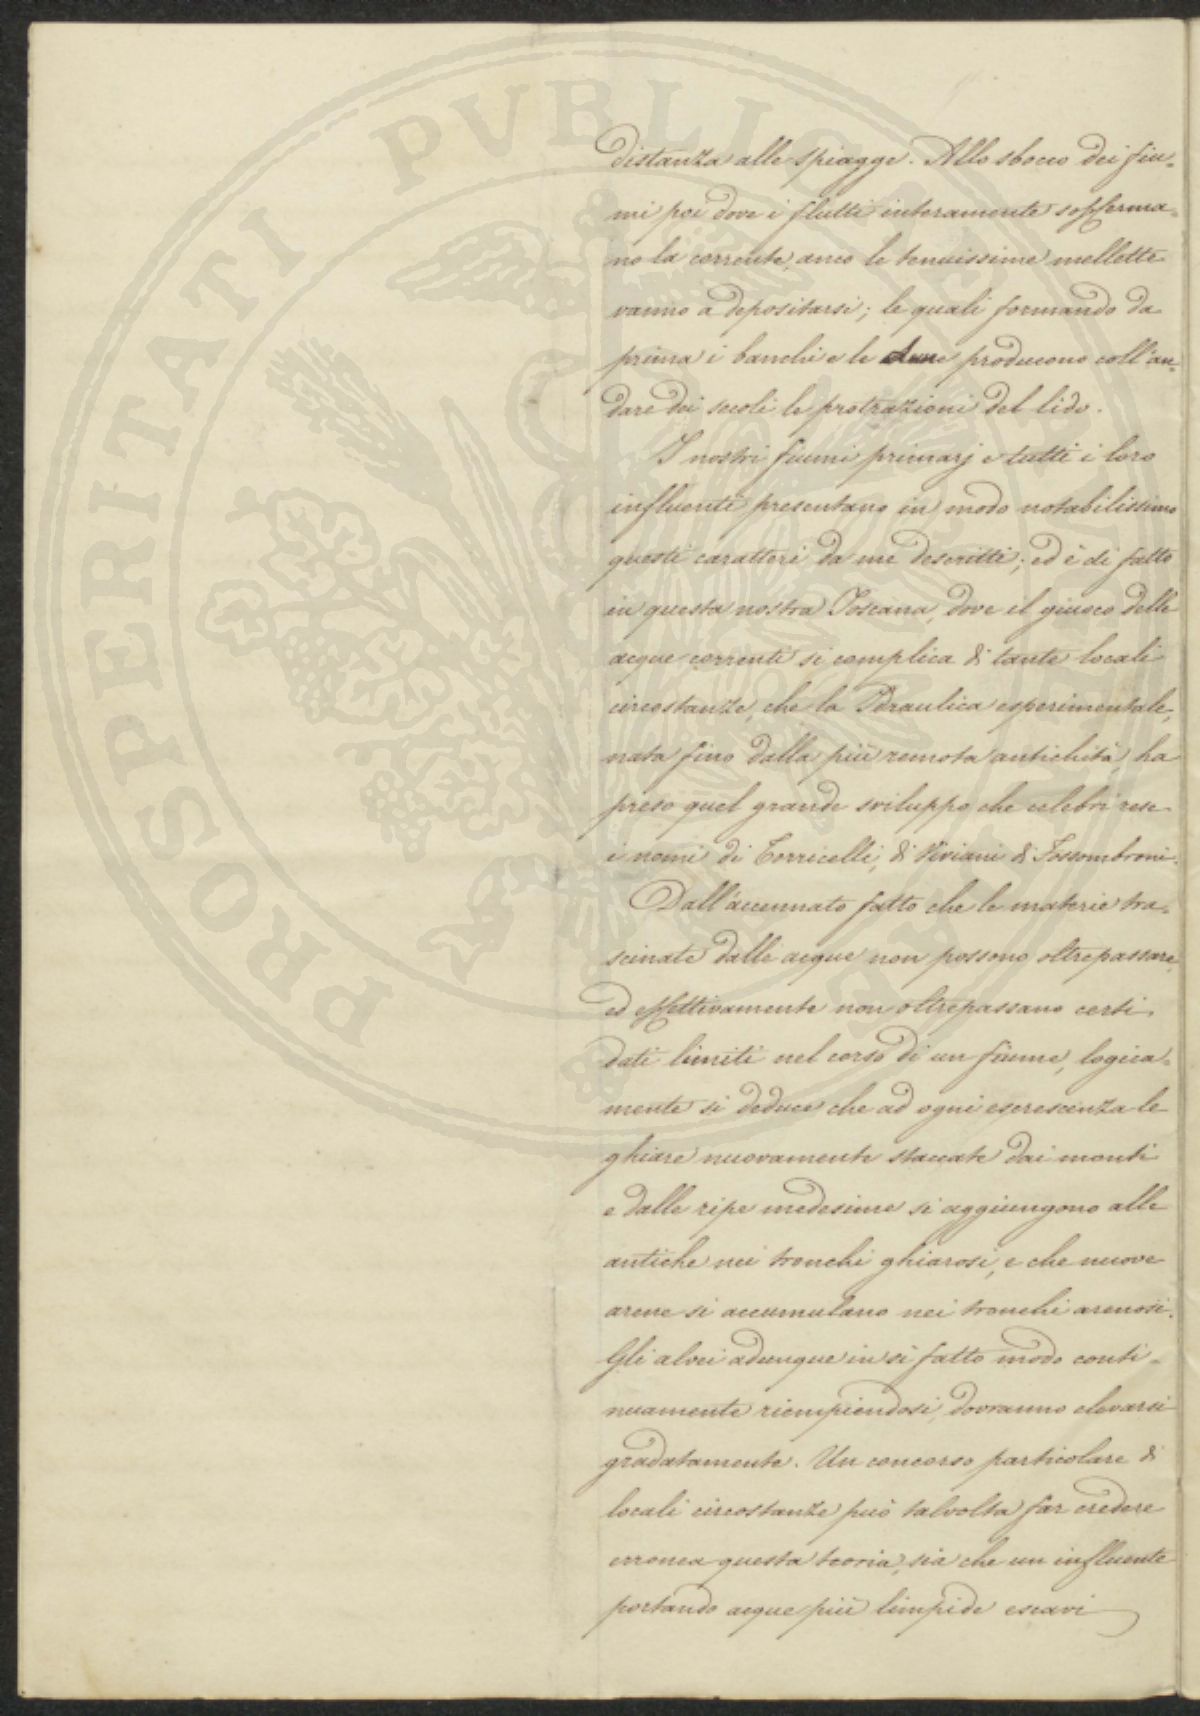 distanza alle spiagge. Allo sbocco dei fiu-
mi poi dove i flutti interamente sofferma-
no la corrente, anco le tenuissime mellette
vanno a depositarsi; le quali formando da
prima i banchi e le dune producono coll'an-
dare dei secoli le protrazioni del lido.
I nostri fiumi primarj e tutti i loro
influenti presentano in modo notabilissimo
questi caratteri da me descritti; ed è di fatto
in questa nostra Toscana, dove il giuoco delle
acque correnti si complica di tante locali
circostanze, che la Idraulica esperimentale,
nata fino dalla più remota antichità, ha
preso quel grande sviluppo che celebri rese
i nomi di Torricelli, di Viviani di Fossombroni.
Dall'accennato fatto che le materie tra-
scinate dalle acque non possono oltrepassare,
ed effettivamente non oltrepassano certi
dati limiti nel corso di un fiume, logica-
mente si deduce che ad ogni escrescenza le
ghiare nuovamente staccate dai monti
e dalle ripe medesime si aggiungono alle
antiche nei tronchi ghiarosi, e che nuove
arene si accumulano nei tronchi arenosi.
Gli alvei adunque in sì fatto modo conti-
nuamente riempiendosi, dovranno elevarsi
gradatamente. Un concorso particolare di
locali circostanze può talvolta far credere
erronea questa teoria, sia che un influente
portando acque più limpide escavi
PROSPERITATI PUBLICAE